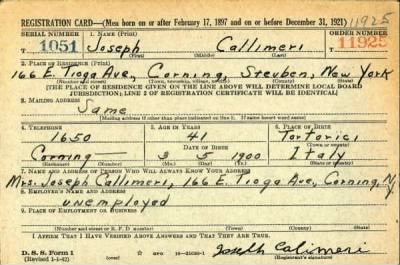 REGISTRATION CARD—(Men born on or after February 17, 1897 and on or before December 31, 1921) 11925
SERIAL NUMBER 1. NAME (Print) ORDER NUMBER
T 1051 Joseph Callimeri T 11925
(First) (Middle) (Last)
2. PLACE OF RESIDENCE (Print)
166 E. Tioga Ave, Corning, Steuben, New York
(Number and street) (Town, township, village, or city) (County) (State)
[THE PLACE OF RESIDENCE GIVEN ON THE LINE ABOVE WILL DETERMINE LOCAL BOARD
JURISDICTION; LINE 2 OF REGISTRATION CERTIFICATE WILL BE IDENTICAL]
3. MAILING ADDRESS
Same
[Mailing address if other than place indicated on line 2. If same insert word same]
4. TELEPHONE 5. AGE IN YEARS 6. PLACE OF BIRTH
1650 41 Tortorici
DATE OF BIRTH (Town or county)
Corning 3 5 1900 Italy
(Exchange) (Number) (Mo.) (Day) (Yr.) (State or country)
7. NAME AND ADDRESS OF PERSON WHO WILL ALWAYS KNOW YOUR ADDRESS
Mrs. Joseph Callimeri, 166 E. Tioga Ave, Corning, N.Y.
8. EMPLOYER'S NAME AND ADDRESS
unemployed
9. PLACE OF EMPLOYMENT OR BUSINESS
(Number and street or R. F. D. number) (Town) (County) (State)
I AFFIRM THAT I HAVE VERIFIED ABOVE ANSWERS AND THAT THEY ARE TRUE.
D. S. S. Form 1
(Revised 1-1-42) GPO 16-21630-1 Joseph Calimeri
(Registrant's signature)